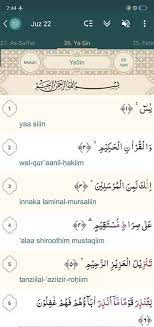 7:44
Juz 22
37. As-Saffat 36. Ya-Sin 35. Fatir
Mekah YaSin 83 ayat
بِسْمِ اللّٰهِ الرَّحْمٰنِ الرَّحِيْمِ
1 يٰسۤ ۚ ﴿١﴾
yaa siiin
2 وَالْقُرْاٰنِ الْحَكِيْمِ ۙ ﴿٢﴾
wal-qur'aanil-ḥakiim
3 اِنَّكَ لَمِنَ الْمُرْسَلِيْنَ ۙ ﴿٣﴾
innaka laminal-mursaliin
4 عَلٰى صِرَاطٍ مُّسْتَقِيْمٍ ۗ ﴿٤﴾
'alaa shiroothim mustaqiim
5 تَنْزِيْلَ الْعَزِيْزِ الرَّحِيْمِ ۙ ﴿٥﴾
tanziilal-'aziizir-roḥiim
6 لِتُنْذِرَ قَوْمًا مَّآ اُنْذِرَ اٰبَاۤؤُهُمْ فَهُمْ غٰفِلُوْنَ